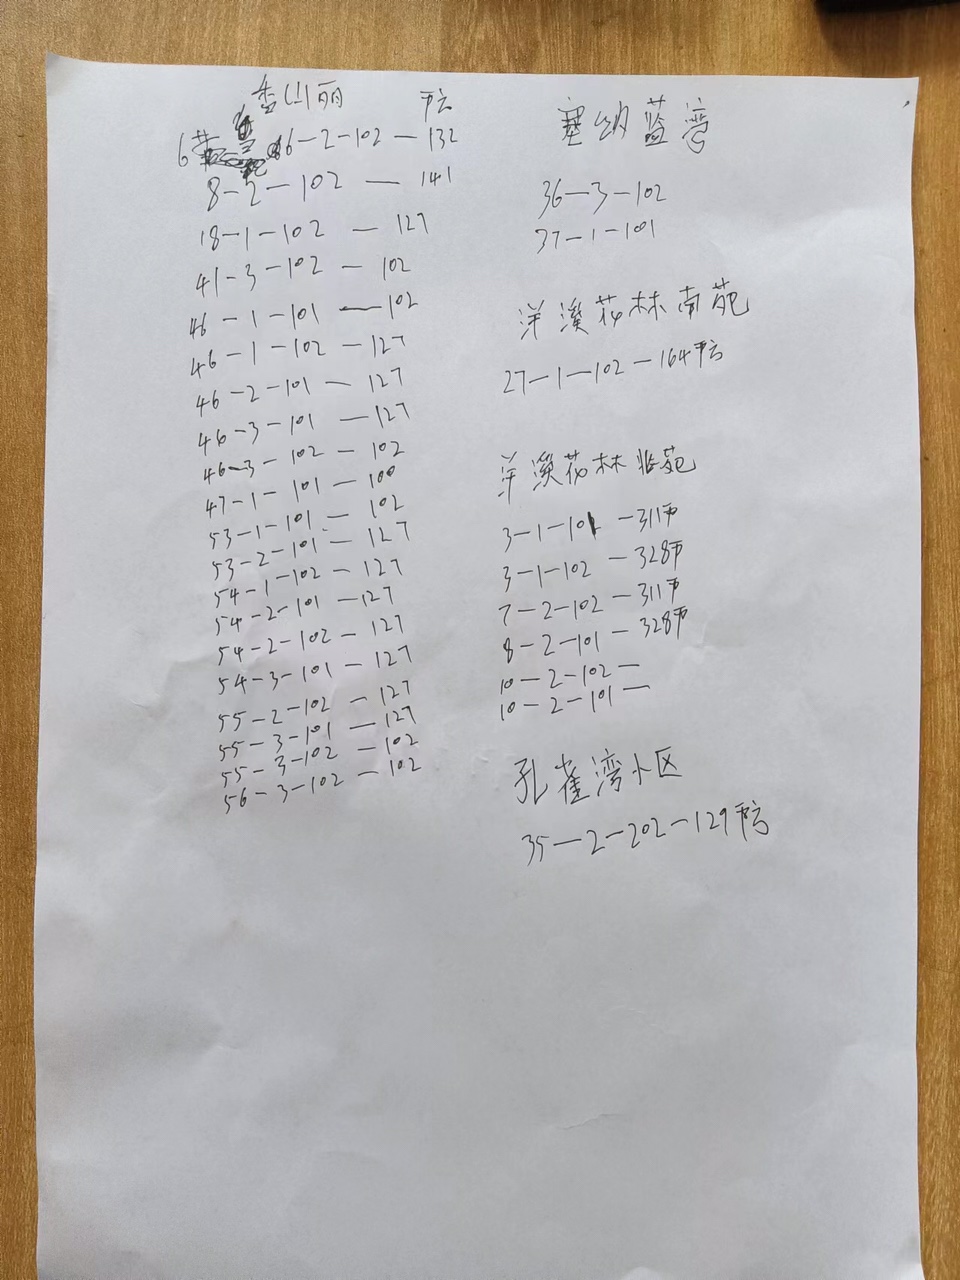 香山丽 平方
6 6-2-102—132
8-2-102—141
18-1-102—127
41-3-102—102
46-1-101—102
46-1-102-127
46-2-101-127
46-3-101—127
46-3-102-102
47-1-101-100
53-1-101-102
53-2-101-127
54-1-102-127
54-2-101-127
54-2-102-127
54-3-101-127
55-2-102-127
55-3-101-127
55-3-102-102
56-3-102-102
塞纳蓝湾
36-3-102
37-1-101
洋溪花林南苑
27-1-102-164平方
洋溪花林北苑
3-1-101-311平
3-1-102-328平
7-2-102-311平
8-2-101-328平
10-2-102—
10-2-101—
孔雀湾小区
35-2-202-129平方